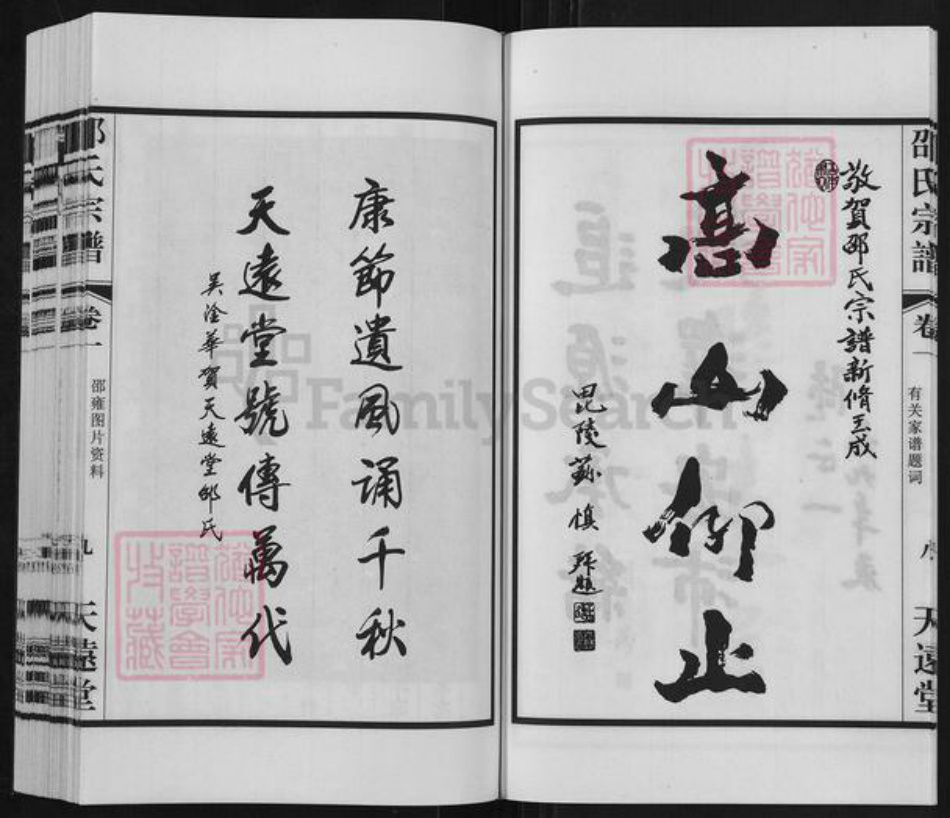 邵氏宗譜
卷一
有关家谱题词
八
天遠堂
敬賀邵氏宗譜新脩玉成
高山仰止
毘陵蘇慎拜題
康節遺風誦千秋
天遠堂號傳萬代
吴淦華賀天遠堂邵氏
邵氏宗譜
卷一
邵雍图片资料
九
天遠堂
譜學會
收藏
FamilySearch